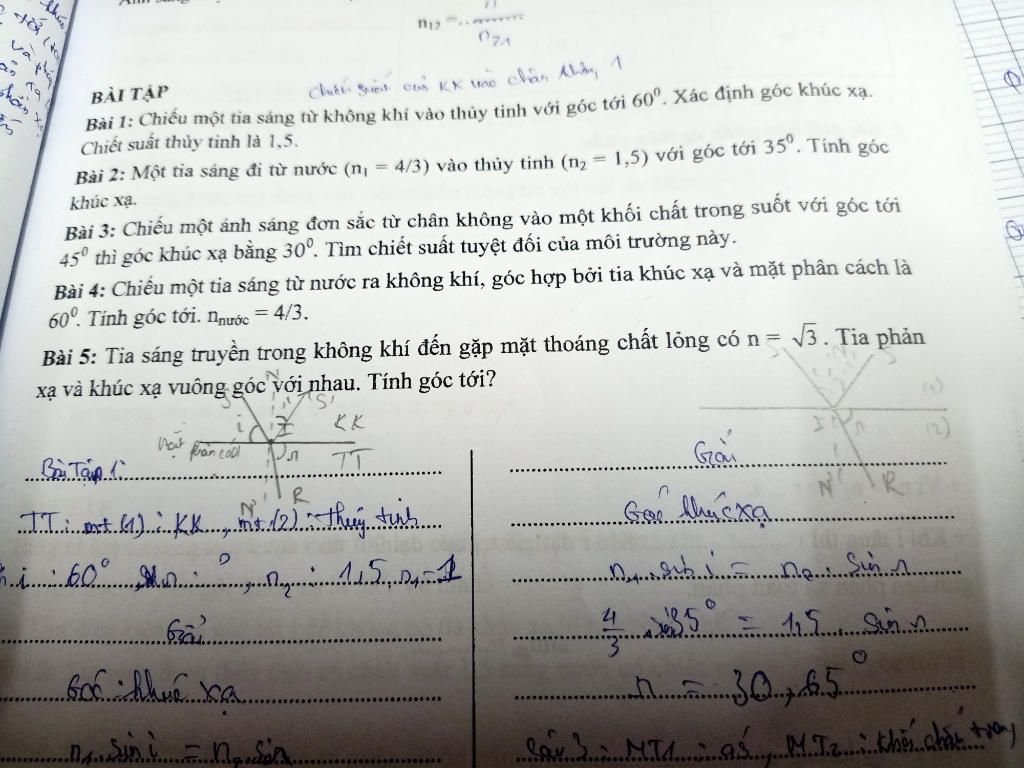 n12 = ..... n / n21
Chiết suất của KK và chân không 1
BÀI TẬP
Bài 1: Chiếu một tia sáng từ không khí vào thủy tinh với góc tới 60⁰. Xác định góc khúc xạ.
Chiết suất thủy tinh là 1,5.
Bài 2: Một tia sáng đi từ nước (n₁ = 4/3) vào thủy tinh (n₂ = 1,5) với góc tới 35⁰. Tính góc
khúc xạ.
Bài 3: Chiếu một ánh sáng đơn sắc từ chân không vào một khối chất trong suốt với góc tới
45⁰ thì góc khúc xạ bằng 30⁰. Tìm chiết suất tuyệt đối của môi trường này.
Bài 4: Chiếu một tia sáng từ nước ra không khí, góc hợp bởi tia khúc xạ và mặt phân cách là
60⁰. Tính góc tới. nnước = 4/3.
Bài 5: Tia sáng truyền trong không khí đến gặp mặt thoáng chất lỏng có n = √3 . Tia phản
xạ và khúc xạ vuông góc với nhau. Tính góc tới?
S N S'
i I KK
mặt phân cách r TT
N' R
Bài Tập 1:
TT: mt (1) : KK, mt (2) : thủy tinh
i : 60°, r : ?, n₂ : 1,5, n₁ = 1
Giải
Góc khúc xạ
n₁ . sin i = n₂ . sin
S N S'
(1)
I r (2)
N' R
Giải
Góc khúc xạ
n₁ . sin i = n₂ . sin r
4/3 . sin 35° = 1,5 . sin r
r = 30,65°
MT1 : as, MT2 : khối chất trong